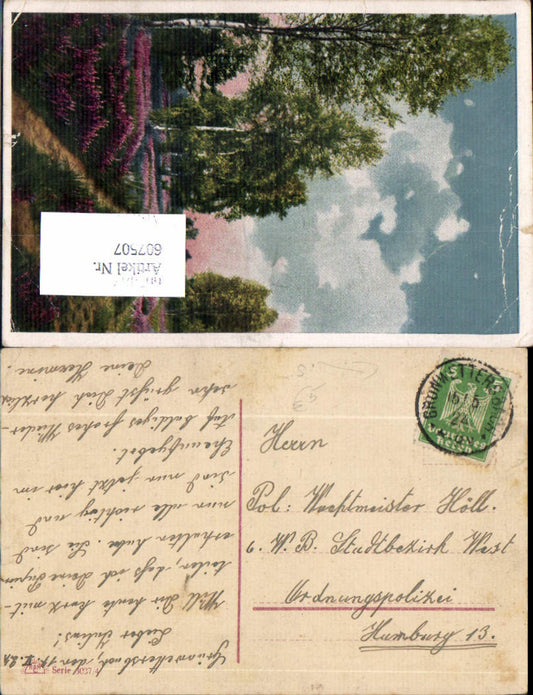 Artikel Nr.
607507
Herrn
Pol: Wachtmeister Höll.
6. W. B. Stadtbezirk West
Ordnungspolizei
Hamburg 13.
Lieber Julius!
Will Dir heute kurz mit-
teilen, daß ich Deine Papiere
erhalten habe. Sie sind
nun alle richtig und
sind nun jetzt hier im
Eheaufgebot.
Auf baldiges frohes Wieder-
sehn grüßt Dich herzlich
Deine Hermine.
Serie